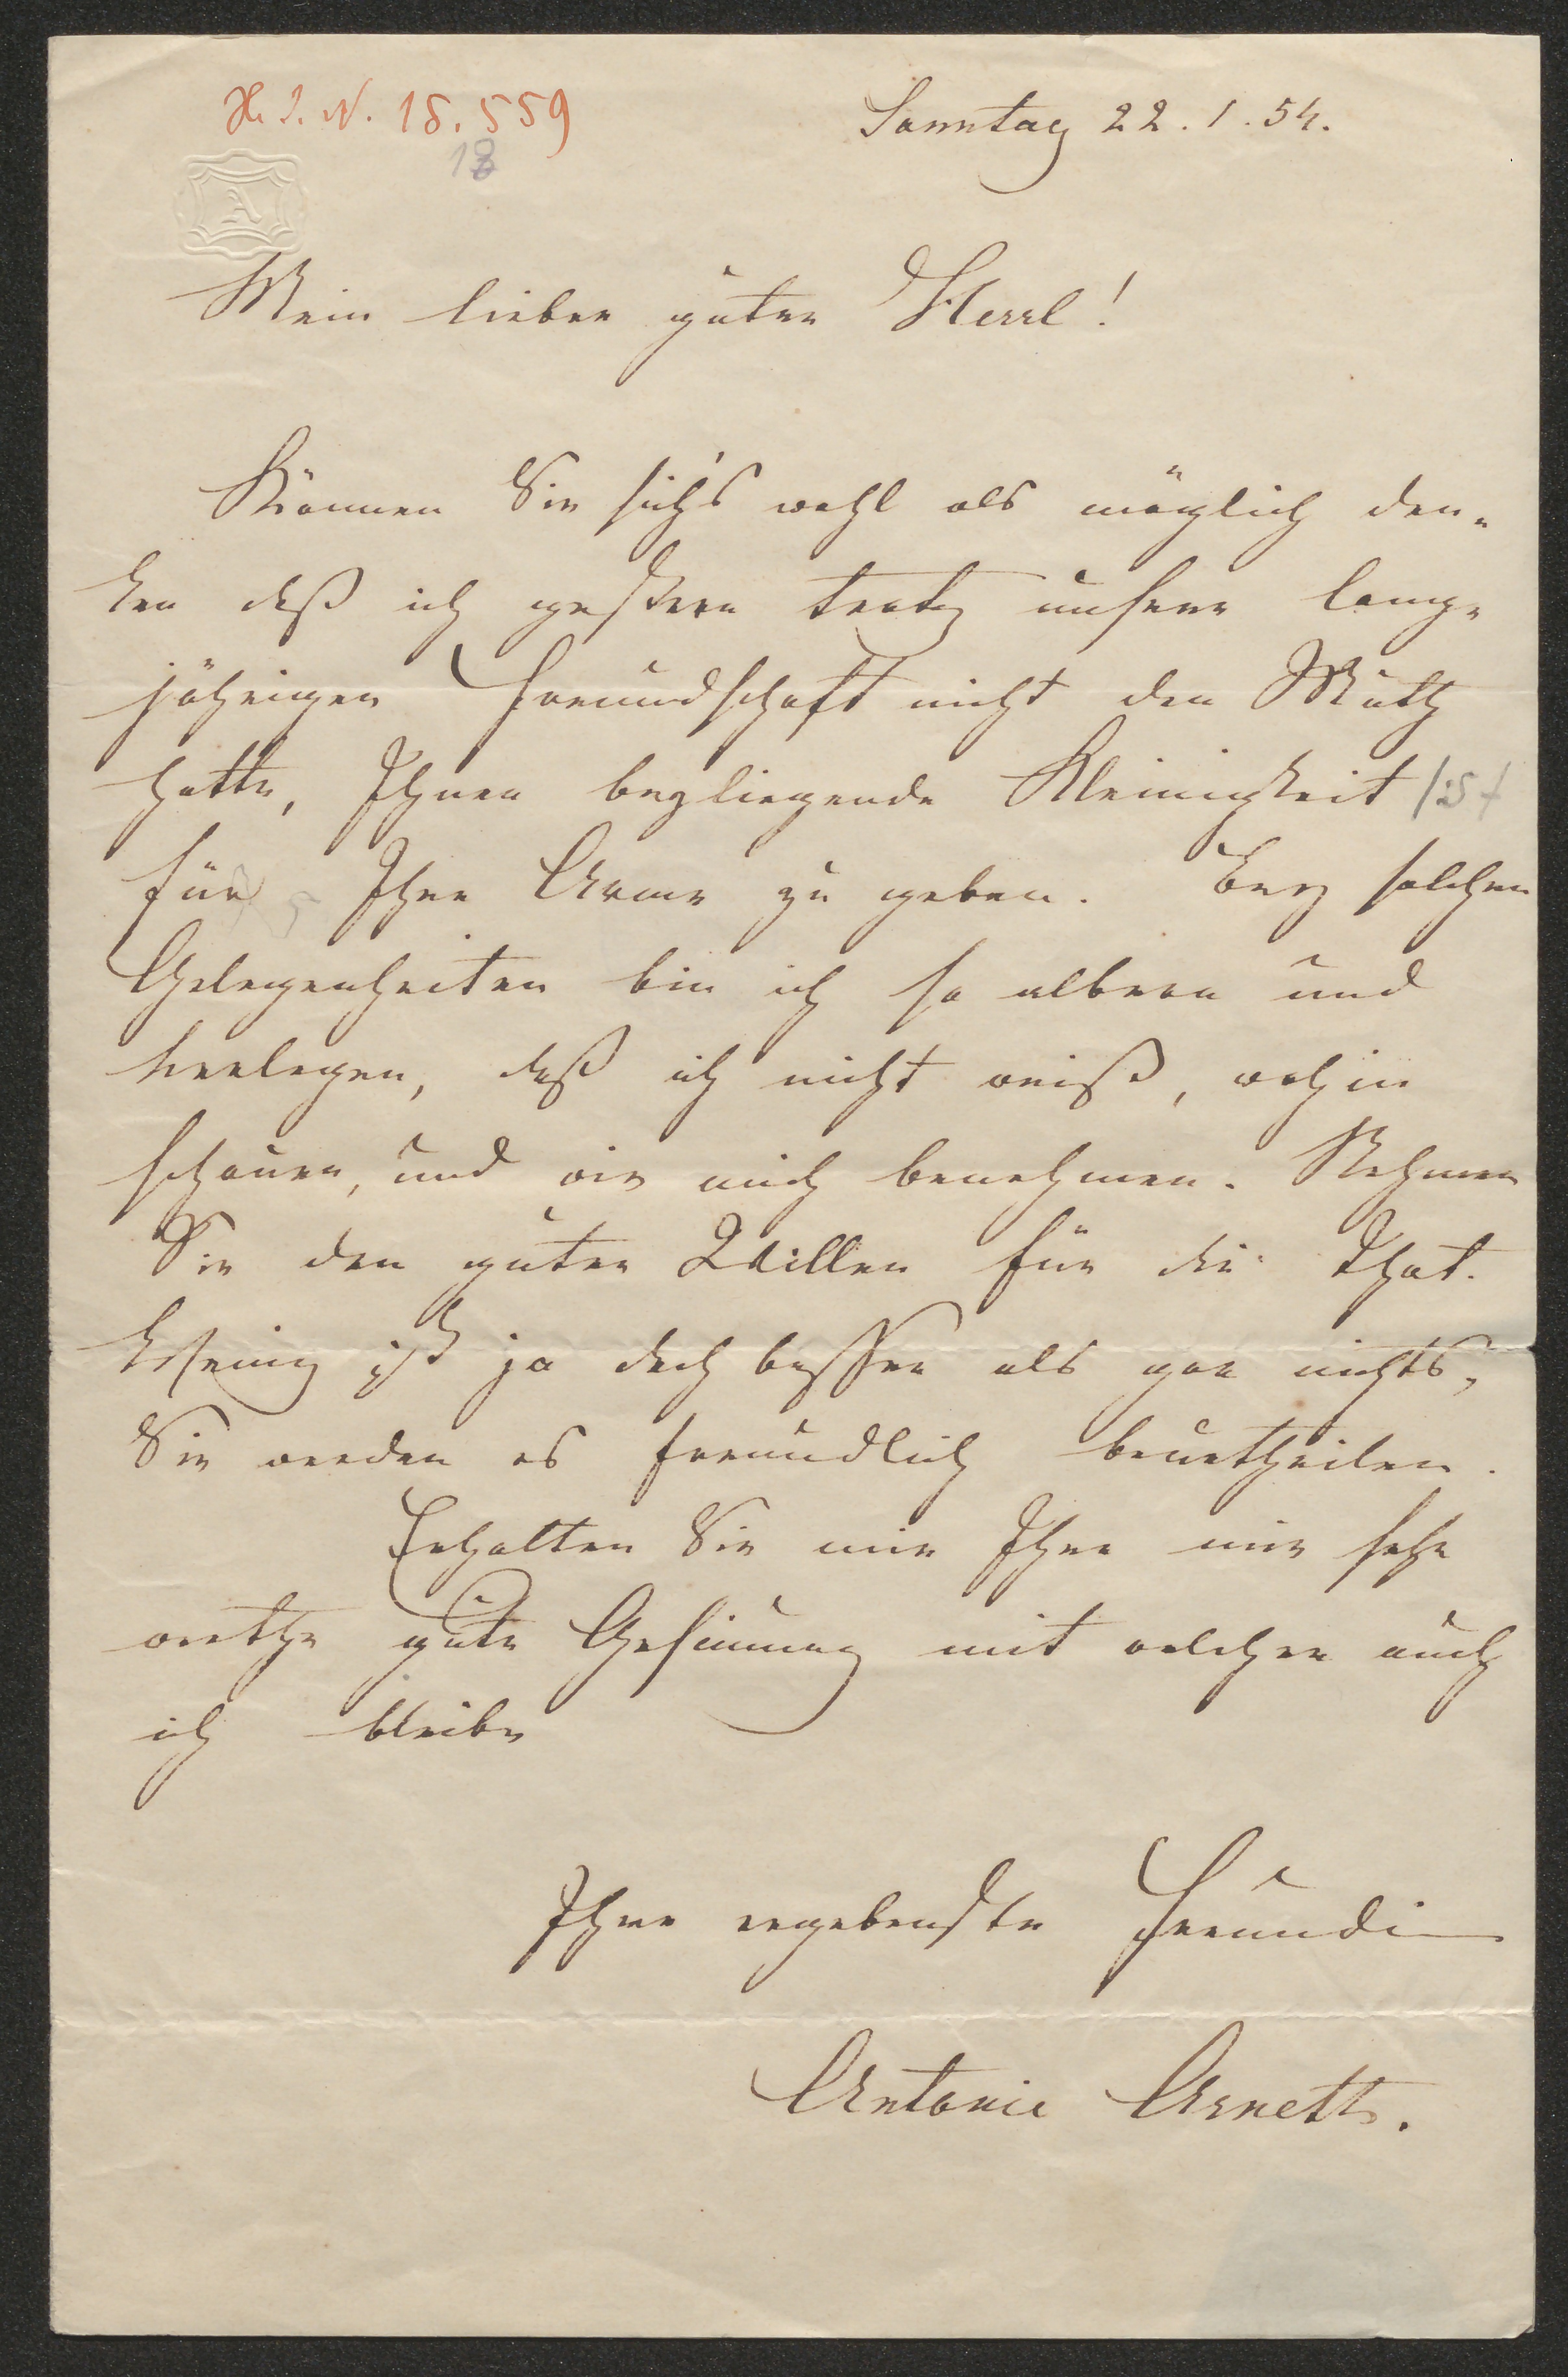 H. I. N. 18.559
18
Sonntag 22.1.54.
A
Mein lieber guter Herrl!
Können Sie sich's wohl als möglich den„
ken daß ich gestern trotz unserer lang„
jährigen Freundschaft nicht den Muth
hatte, Ihnen beyliegende Kleinigkeit
für Ihre Arme zu geben. Bey solchen
Gelegenheiten bin ich so albern und
verlegen, daß ich nicht weiß, wohin
schauen, und wie mich benehmen. Nehmen
Sie den guten Willen für die That.
Wenig ist ja doch besser als gar nichts,
Sie werden es freundlich beurtheilen.
Erhalten Sie mir Ihre mir sehr
werthe gute Gesinnung mit welcher auch
ich bleibe
Ihre ergebenste Freundin
Antonie Arneth.